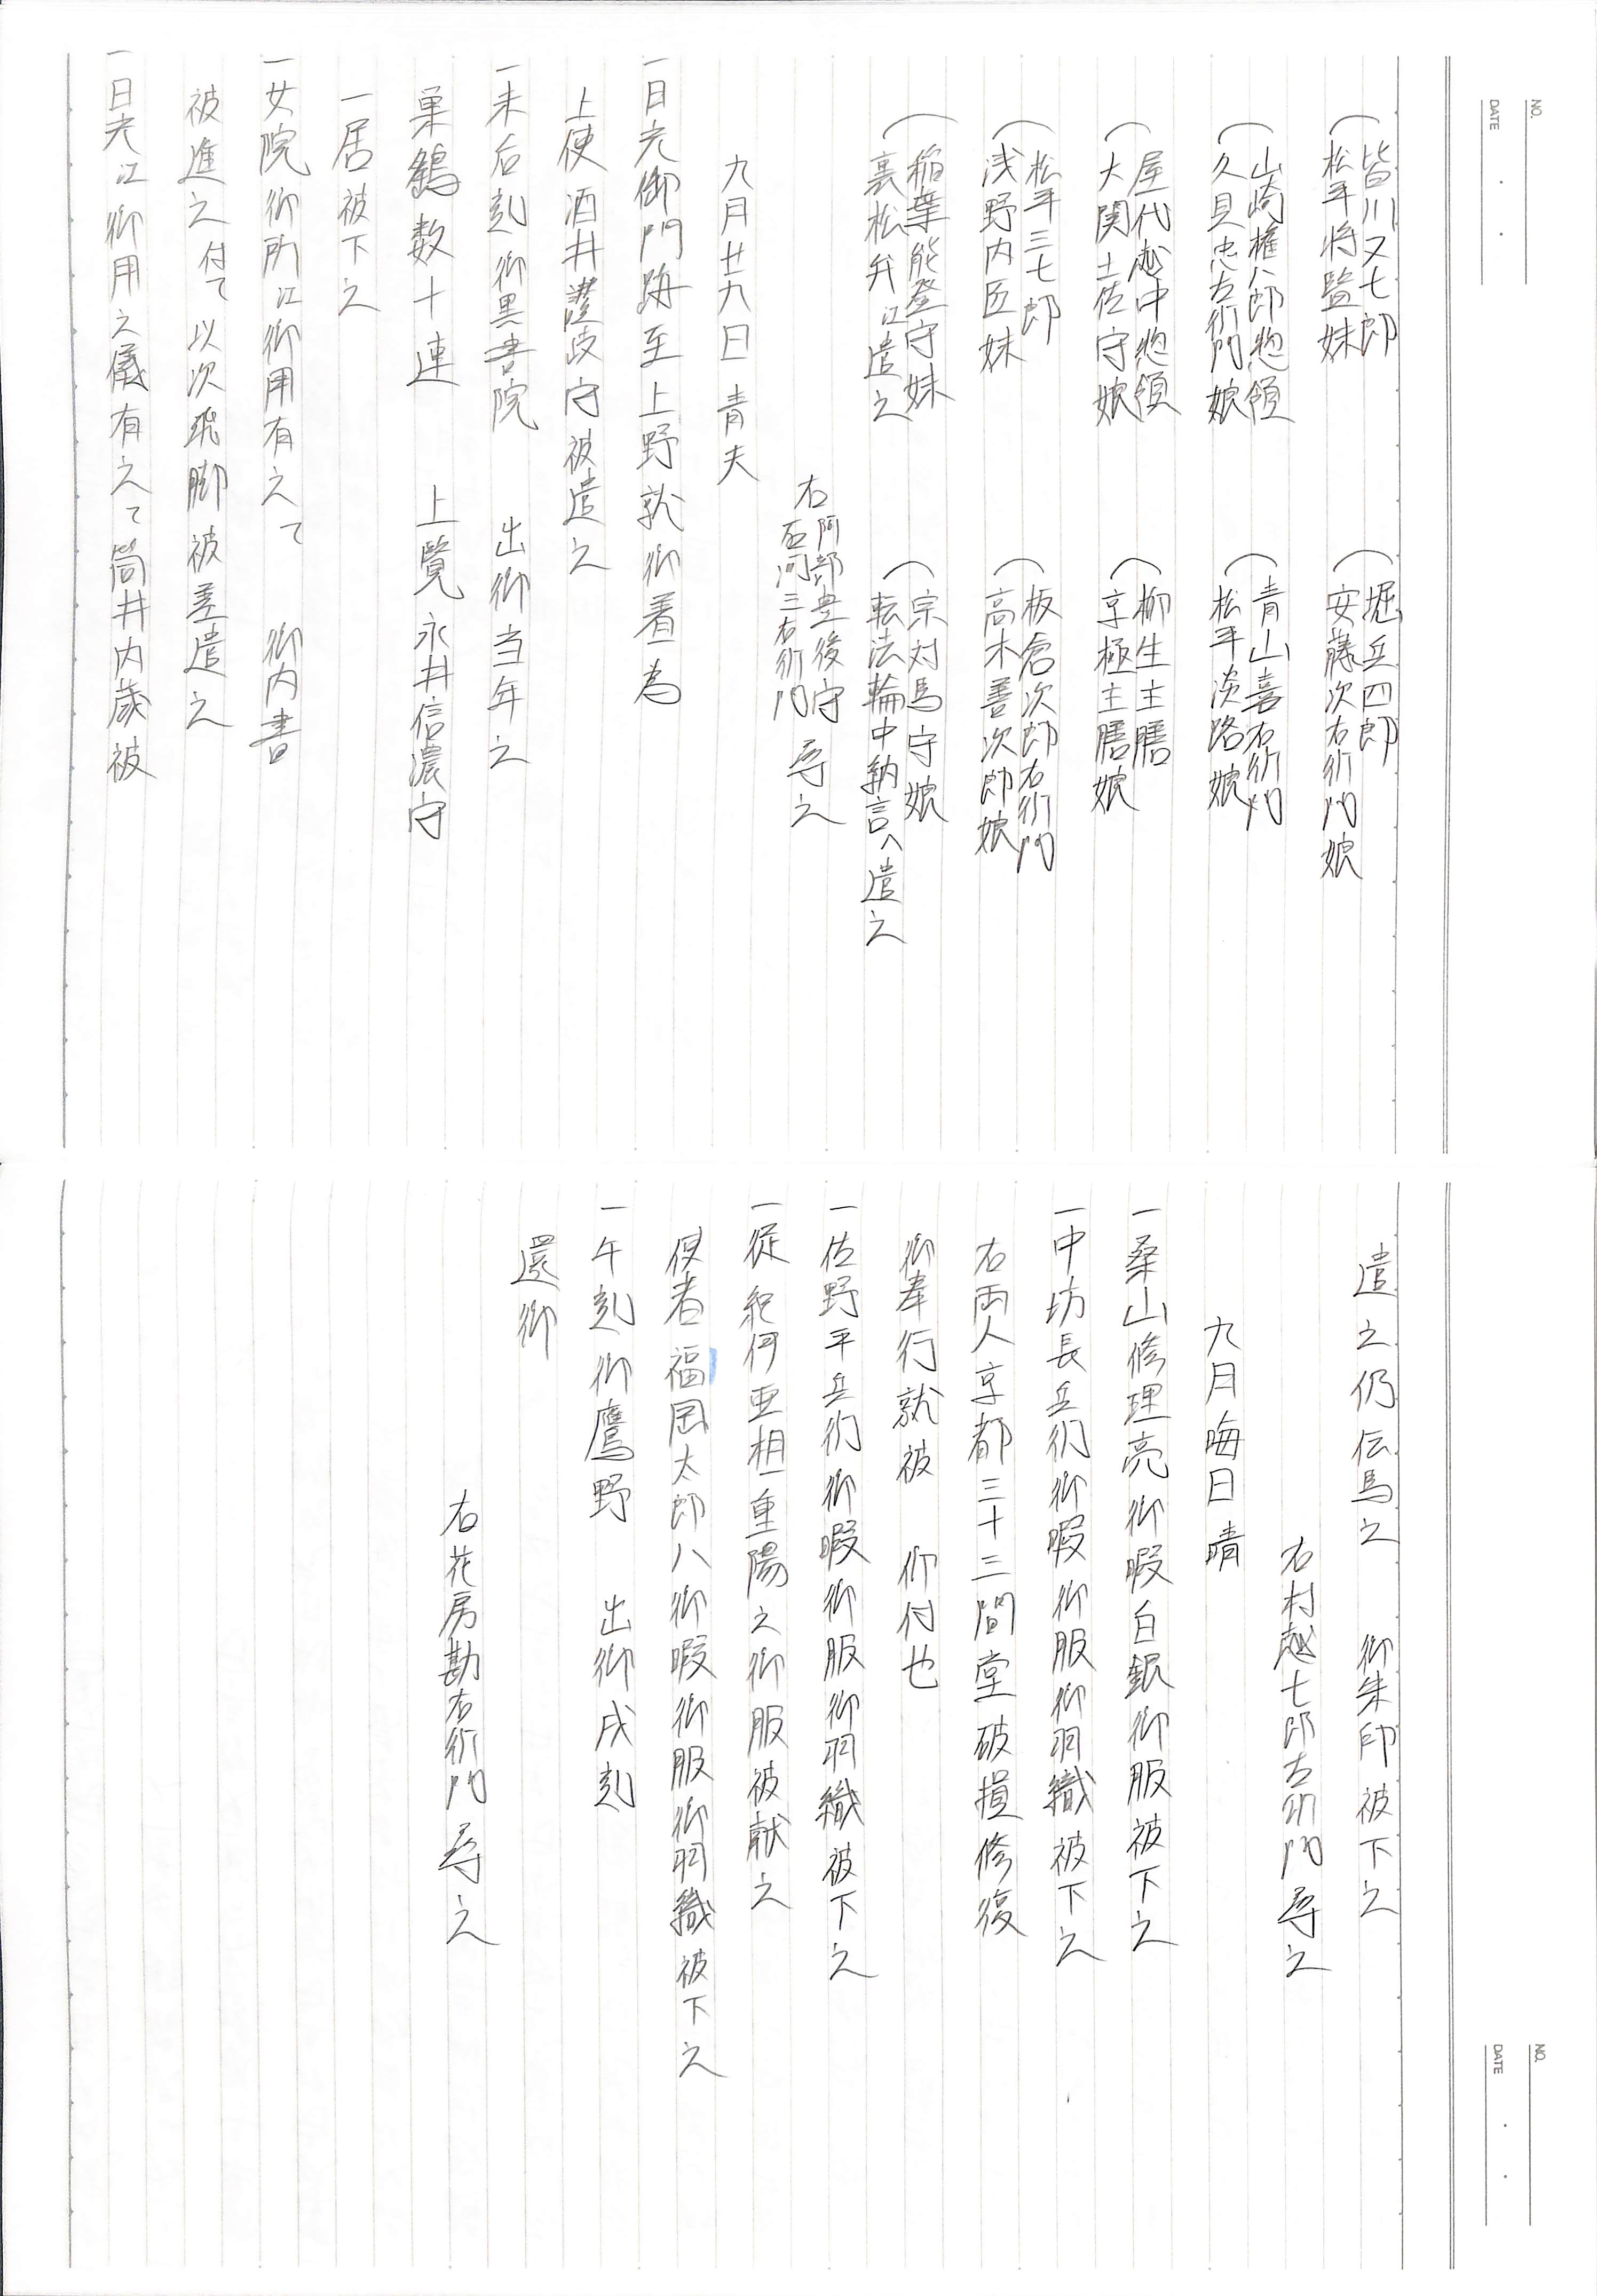 皆川又七郎
松平将監妹
堀兵四郎
安藤次右衛門娘
山崎権八郎惣領
久貝忠左衛門娘
青山喜右衛門
松平淡路娘
屋代越中惣領
大関土佐守娘
柳生主膳
京極主膳娘
松平三七郎
浅野内匠妹
板倉次郎右衛門
高木善次郎娘
稲葉能登守妹
裏松弁江遣之
宗対馬守娘
転法輪中納言へ遣之
右 阿部豊後守
石河三右衛門 尋之
九月廿九日 青天
一日光御門跡至上野就御着為
上使酒井讃岐守被遣之
一未后刻御黒書院 出御当年之
巣鷂数十連 上覧永井信濃守
一居被下之
一女院御所江御用有之て 御内書
被進之付て以次飛脚被差遣之
一日光江御用之儀有之て筒井内蔵被
遣之仍伝馬之 御朱印被下之
右村越七郎左衛門尋之
九月晦日 晴
一桑山修理亮御暇白銀御服被下之
一中坊長兵衛御暇御服御羽織被下之
右両人京都三十三間堂破損修復
御奉行就被 仰付也
一佐野平兵衛御暇御服御羽織被下之
一従紀伊亜相重陽之御服被献之
使者福岡太郎八御暇御服御羽織被下之
一午刻御鷹野 出御戌刻
還御
右花房勘右衛門尋之
NO.
DATE
NO.
DATE